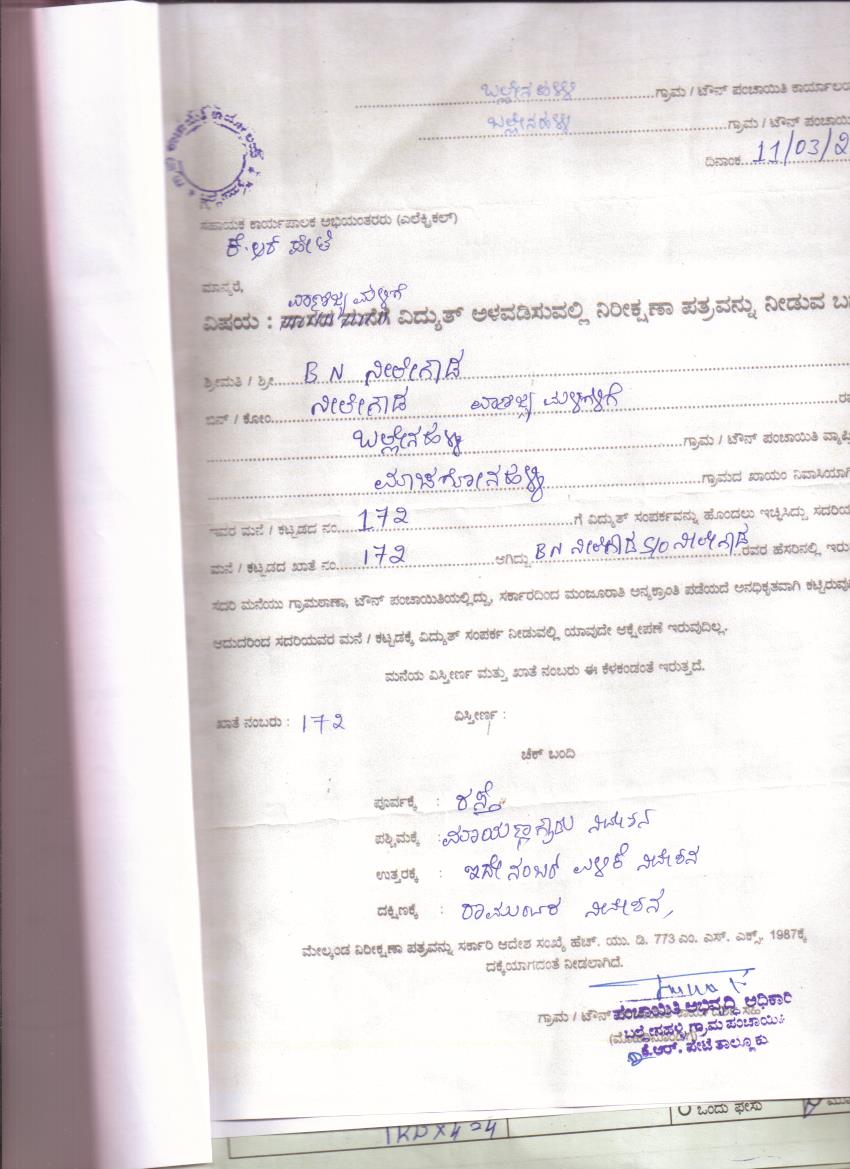 ಬಲ್ಲೇನಹಳ್ಳಿ ಗ್ರಾಮ / ಟೌನ್ ಪಂಚಾಯಿತಿ ಕಾರ್ಯಾಲಯ
ಬಲ್ಲೇನಹಳ್ಳಿ ಗ್ರಾಮ / ಟೌನ್ ಪಂಚಾಯಿ
ದಿನಾಂಕ 11/03/2
ಸಹಾಯಕ ಕಾರ್ಯಪಾಲಕ ಅಭಿಯಂತರರು (ಎಲೆಕ್ಟ್ರಿಕಲ್)
ಕೆ.ಆರ್ ಪೇಟೆ
ಮಾನ್ಯರೆ,
ವಾಣಿಜ್ಯ ಮಳಿಗೆ
ವಿಷಯ : ವಿದ್ಯುತ್ ಅಳವಡಿಸುವಲ್ಲಿ ನಿರೀಕ್ಷಣಾ ಪತ್ರವನ್ನು ನೀಡುವ ಬ
ಶ್ರೀಮತಿ / ಶ್ರೀ B N ನೀಲೇಗೌಡ
ಬಿನ್ / ಕೋಂ ನೀಲೇಗೌಡ ವಾಣಿಜ್ಯ ಮಳಿಗಳಿಗೆ ರವ
ಬಲ್ಲೇನಹಳ್ಳಿ ಗ್ರಾಮ / ಟೌನ್ ಪಂಚಾಯಿತಿ ವ್ಯಾಪ್ತಿ
ಮಾಚಗೋನಹಳ್ಳಿ ಗ್ರಾಮದ ಖಾಯಂ ನಿವಾಸಿಯಾಗಿ
ಇವರ ಮನೆ / ಕಟ್ಟಡದ ನಂ. 172 ಗೆ ವಿದ್ಯುತ್ ಸಂಪರ್ಕವನ್ನು ಹೊಂದಲು ಇಚ್ಛಿಸಿದ್ದು ಸದರಿಯ
ಮನೆ / ಕಟ್ಟಡದ ಖಾತೆ ನಂ. 172 ಆಗಿದ್ದು BN ನೀಲೇಗೌಡ S/O ನೀಲೇಗೌಡ ರವರ ಹೆಸರಿನಲ್ಲಿ ಇರು
ಸದರಿ ಮನೆಯು ಗ್ರಾಮಠಾಣಾ, ಟೌನ್ ಪಂಚಾಯಿತಿಯಲ್ಲಿದ್ದು, ಸರ್ಕಾರದಿಂದ ಮಂಜೂರಾತಿ ಅನ್ಯಕ್ರಾಂತಿ ಪಡೆಯದೆ ಅನಧಿಕೃತವಾಗಿ ಕಟ್ಟಿರುವು
ಆದುದರಿಂದ ಸದರಿಯವರ ಮನೆ / ಕಟ್ಟಡಕ್ಕೆ ವಿದ್ಯುತ್ ಸಂಪರ್ಕ ನೀಡುವಲ್ಲಿ ಯಾವುದೇ ಆಕ್ಷೇಪಣೆ ಇರುವುದಿಲ್ಲ.
ಮನೆಯ ವಿಸ್ತೀರ್ಣ ಮತ್ತು ಖಾತೆ ನಂಬರು ಈ ಕೆಳಕಂಡಂತೆ ಇರುತ್ತದೆ.
ಖಾತೆ ನಂಬರು : 172 ವಿಸ್ತೀರ್ಣ :
ಚೆಕ್ ಬಂದಿ
ಪೂರ್ವಕ್ಕೆ : ರಸ್ತೆ
ಪಶ್ಚಿಮಕ್ಕೆ : ನಿವೇಶನ
ಉತ್ತರಕ್ಕೆ : ಇದೇ ನಂಬರ್ ನಿವೇಶನ
ದಕ್ಷಿಣಕ್ಕೆ : ನಿವೇಶನ,
ಮೇಲ್ಕಂಡ ನಿರೀಕ್ಷಣಾ ಪತ್ರವನ್ನು ಸರ್ಕಾರಿ ಆದೇಶ ಸಂಖ್ಯೆ ಹೆಚ್. ಯು. ಡಿ. 773 ಎಂ. ಎಸ್. ಎಕ್ಸ್. 1987ಕ್ಕೆ
ದಕ್ಕೆಯಾಗದಂತೆ ನೀಡಲಾಗಿದೆ.
ಗ್ರಾಮ / ಟೌನ್ ಪಂಚಾಯಿತಿ ಅಭಿವೃದ್ಧಿ ಅಧಿಕಾರಿ
ಬಲ್ಲೇನಹಳ್ಳಿ ಗ್ರಾಮ ಪಂಚಾಯಿತಿ
ಕೆ.ಆರ್. ಪೇಟೆ ತಾಲ್ಲೂಕು
ಒಂದು ಫೇಸು